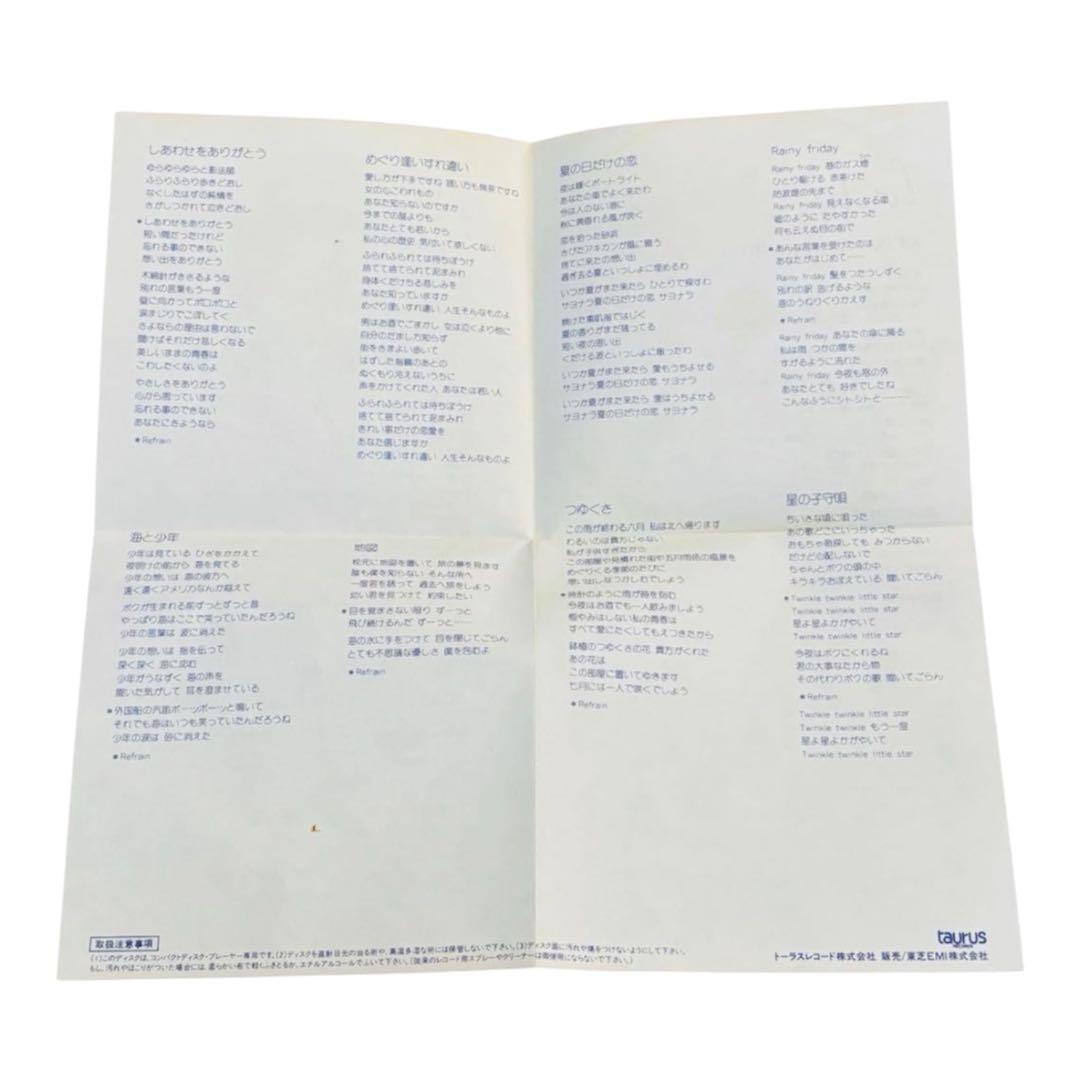 しあわせをありがとう
ゆらゆらゆらと影法師
ふらりふらり歩きどおし
なくしたはずの純情を
さがしつかれて泣きどおし
*しあわせをありがとう
短い間だったけれど
忘れる事のできない
想い出をありがとう
木綿針がささるような
別れの言葉もう一度
壁に向かってポロポロと
涙まじりでこぼしてく
さよならの理由は言わないで
聞けばそれだけ悲しくなる
美しいままの青春は
こわしたくないのよ
やさしさをありがとう
心から思っています
忘れる事のできない
あなたにさようなら
*Refrain
めぐり逢いすれ違い
愛し方が下手ですね 誘い方も無茶ですね
女の心こわれもの
あなた知らないのですか
今までの誰よりも
あなたとても若いから
私の心の歴史 気付いて欲しくない
ふられふられては待ちぼうけ
捨てて捨てられて泥まみれ
身体くだけちる悲しみを
あなた知っていますか
めぐり逢いすれ違い 人生そんなものよ
男はお酒でごまかし 女は泣くより他に
自分のだまし方知らず
街をさまよい歩いて
はずした指輪のあとの
ぬくもり冷えないうちに
声をかけてくれた人 あなたは若い人
ふられふられては待ちぼうけ
捨てて捨てられて泥まみれ
きれい事だけの恋愛を
あなた信じますか
めぐり逢いすれ違い 人生そんなものよ
夏の日だけの恋
夜は輝くポートライト
あなたの車でよく来たわ
今は人のない港に
秋に黄昏れる風が吹く
恋を拾った砂浜
さびたアキカンが風に舞う
捨てに来たの想い出
過ぎ去る夏といっしょに埋めるわ
いつか夏がまた来たら ひとりで探すわ
サヨナラ夏の日だけの恋 サヨナラ
焼けた素肌海ではじく
夏の香りがまだ残ってる
短い夜の思い出
くだける波といっしょに散ったわ
いつか夏がまた来たら 愛もうちよせる
サヨナラ夏の日だけの恋 サヨナラ
いつか夏がまた来たら 愛はうちよせる
サヨナラ夏の日だけの恋 サヨナラ
Rainy friday
Rainy friday 巷のガス燈
ひとり駆ける 赤茶けた
防波堤の先まで
Rainy friday 見えなくなる車
嘘のように たやすかった
何も云えぬ目の前で
*あんな言葉を受けたのは
あなたがはじめて──
Rainy friday 髪をつたうしずく
別れの訳 告げるような
海のうねりくりかえす
*Refrain
Rainy friday あなたの傘に降る
私は雨 つかの間を
すがるように流れた
Rainy friday 今夜も窓の外
あなたとても 好きでしたね
こんなふうにシトシトと────
海と少年
少年は見ている ひざをかかえて
夜明けの前から 海を見てる
少年の想いは 海の彼方へ
遠く遠くアメリカなんか越えて
ボクが生まれる前ずっとずっと昔
やっぱり海はここで笑っていたんだろうね
少年の言葉は 波に消えた
少年の想いは 指を伝って
深く深く 海に沈む
少年がうなずく 海の声を
聞いた気がして 耳を澄ませている
*外国船の汽笛ボーッボーッと鳴いて
それでも海はいつも笑っていたんだろうね
少年の涙は 砂に消えた
*Refrain
地図
枕元に地図を置いて 旅の夢を見ます
誰も僕を知らない そんな所へ
一度君を誘って 過去へ旅をしよう
幼い君を見つけて 約束したい
*目を覚まさない限り ずーっと
飛び続けるんだ ずーっと──
海の水に手をつけて 目を閉じてごらん
とても不思議な優しさ 僕を包むよ
*Refrain
つゆくさ
この雨が終わる六月 私は北へ帰ります
わるいのは貴方じゃない
私が子供すぎたから
この部屋や見慣れた街や五月雨色の風景を
めぐりくる季節のたびに
想い出しなつかしむでしょう
*時計のように雨が時を刻む
今夜はお酒でも一人飲みましょう
悔やみはしない私の青春は
すべて愛にたくしてもえつきたから
鉢植のつゆくさの花 貴方がくれた
あの花は
この部屋に置いてゆきます
七月には一人で咲くでしょう
*Refrain
星の子守唄
ちいさな頃に唄った
あの歌どこにいっちゃった
おもちゃ箱探しても みつからない
だけど心配しないで
ちゃんとボクの頭の中
キラキラおぼえている 聞いてごらん
*Twinkle twinkle little star
Twinkle twinkle little star
星よ星よかがやいて
Twinkle twinkle little star
今夜はボクにくれるね
君の大事なたから物
その代わりボクの歌 聞いてごらん
*Refrain
Twinkle twinkle little star
Twinkle twinkle もう一度
星よ星よかがやいて
Twinkle twinkle little star
取扱注意事項
(1)このディスクは、コンパクトディスク・プレーヤー専用です。(2)ディスクを直射日光の当る所や、高温多湿な所には保管しないで下さい。(3)ディスク面に汚れや傷をつけないようにして下さい。
もし、汚れやほこりがついた場合には、柔らかい布で軽くふきとるか、エチルアルコールでふいて下さい。(従来のレコード用スプレーやクリーナーは御使用にならないで下さい。)
taurus
トーラスレコード株式会社 販売/東芝EMI株式会社